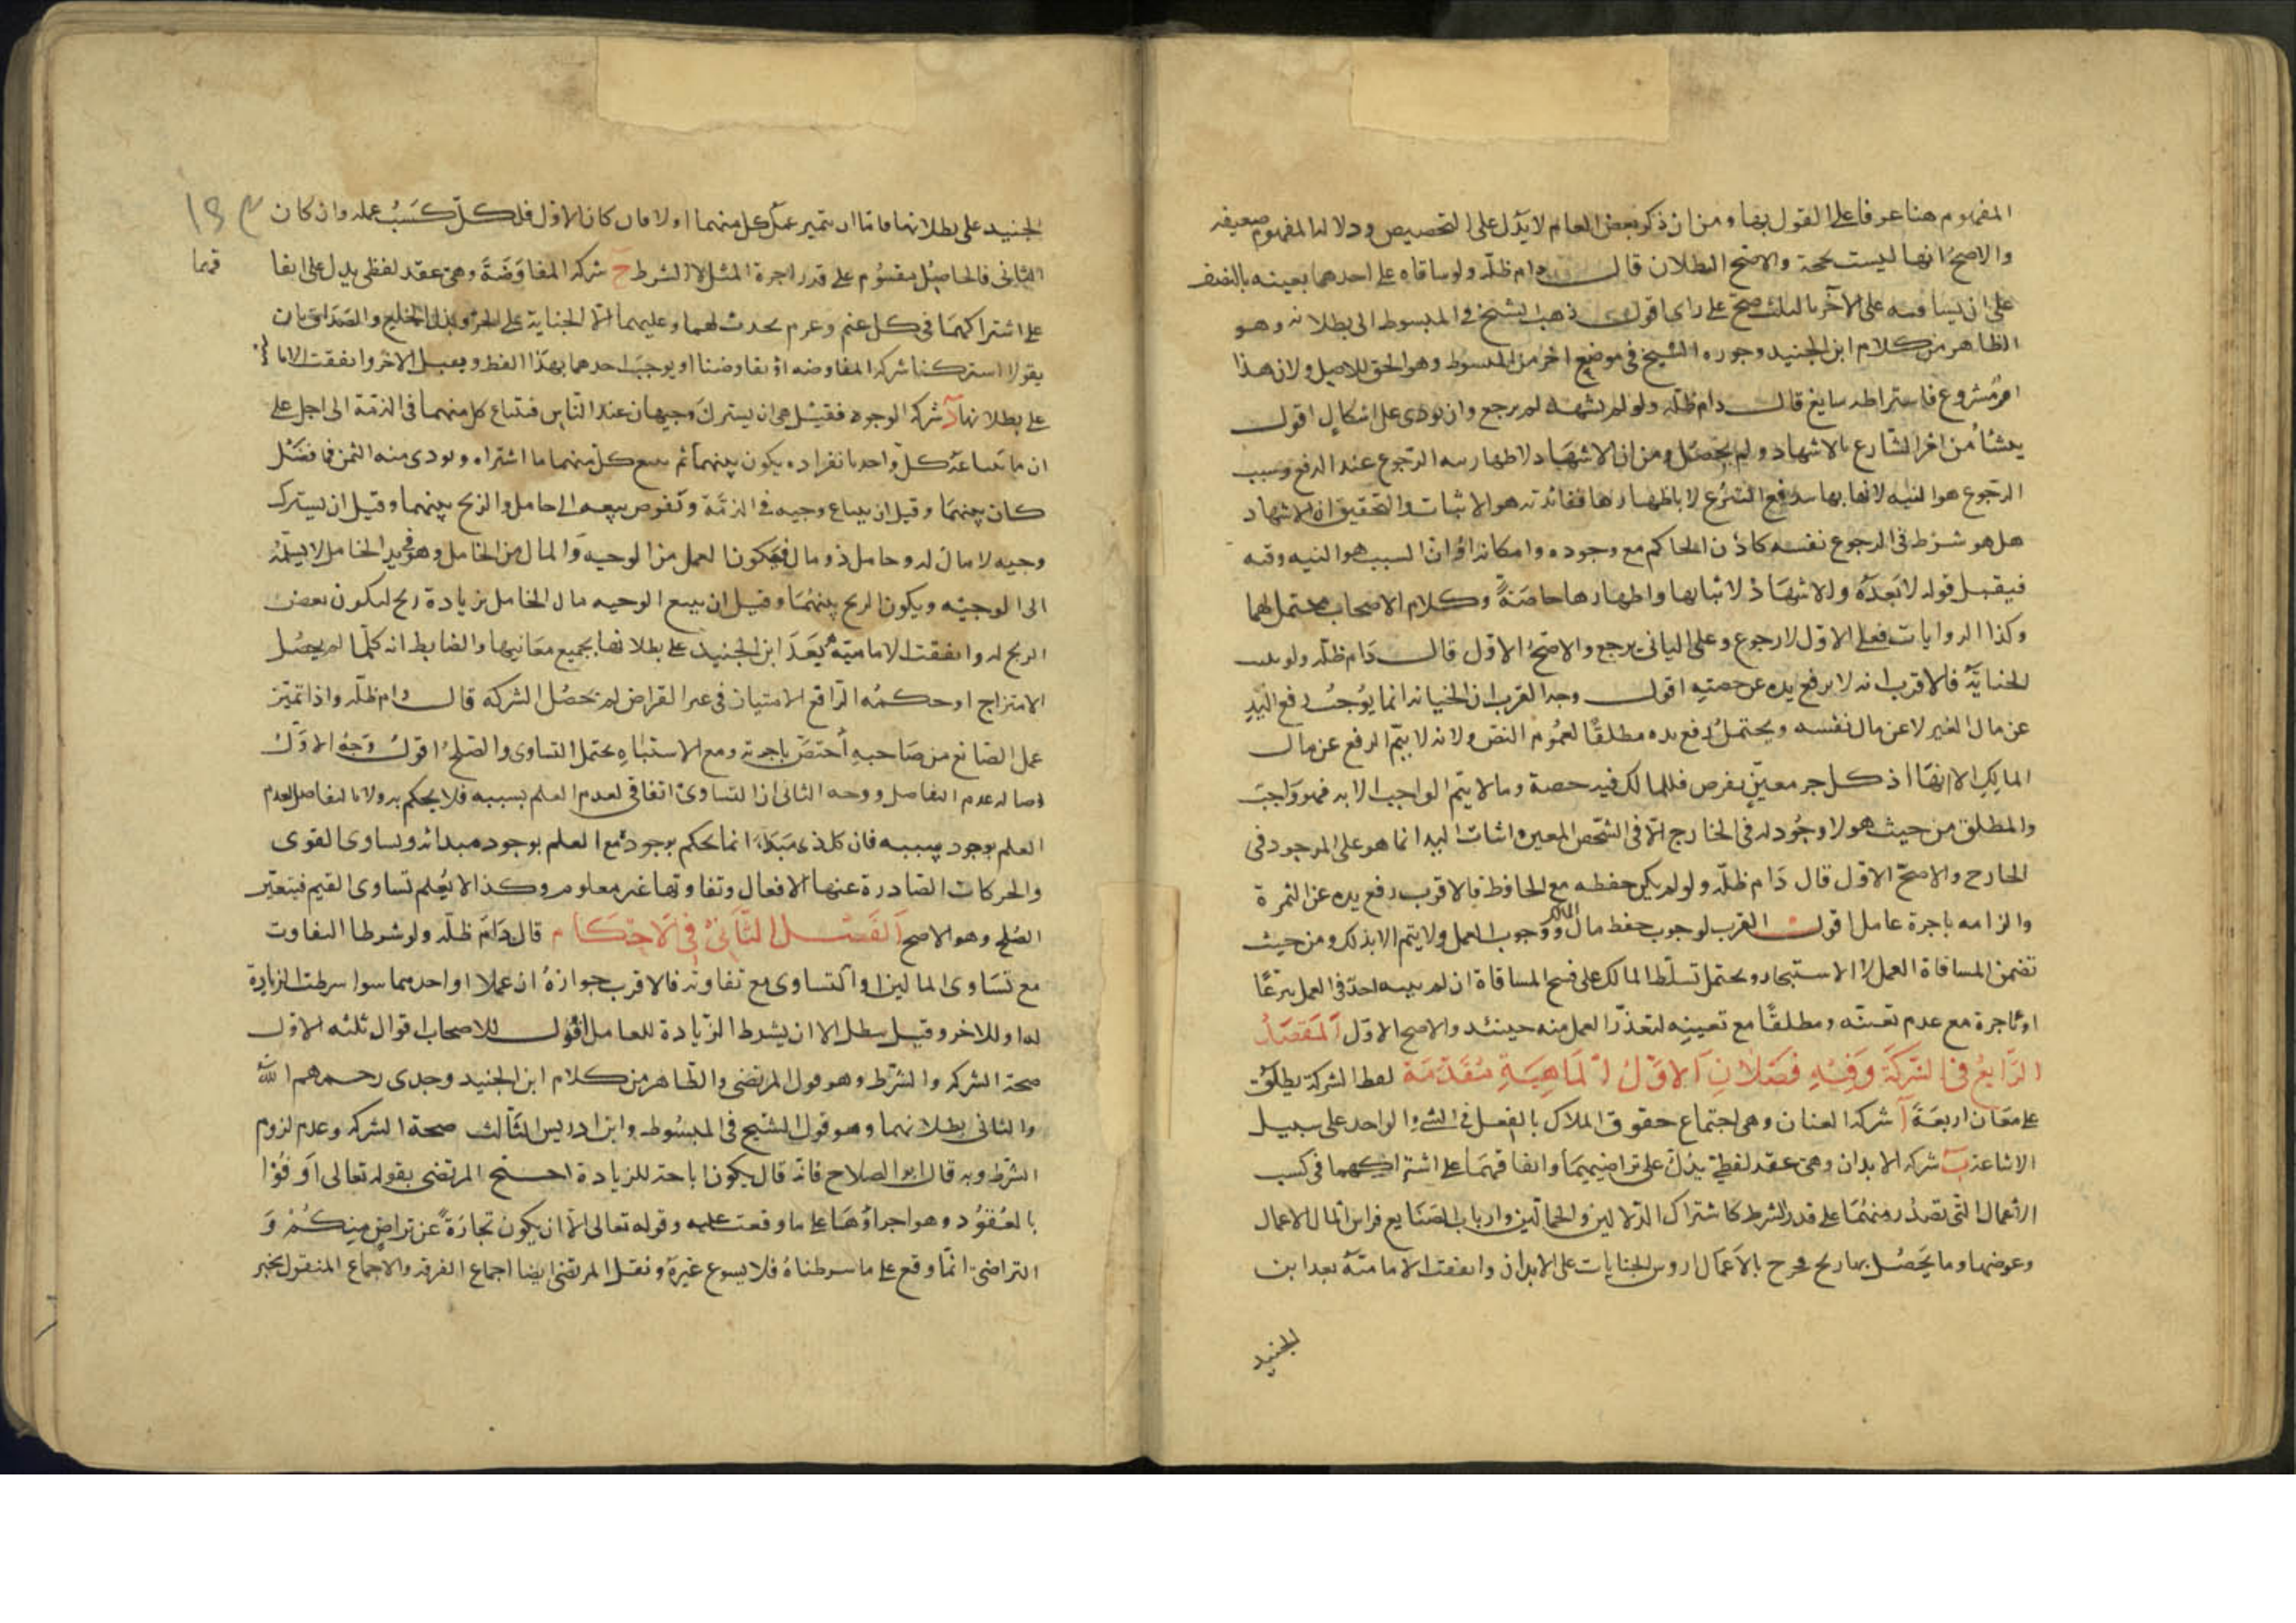 المفهوم هنا عرفا على القول بها ومن ان ذكر بعض العام لا يدل على التخصيص ودلالة المفهوم ضعيفه
والاصح انها ليست بحجة والاصح البطلان قال دام ظله ولو ساقاه على احدهما بعينه بالنصف
على ان يساقيه على الآخر بالثلث صح على راى اقول ذهب الشيخ فى المبسوط الى بطلانه وهو
الظاهر من كلام ابن الجنيد وجوزه الشيخ فى موضع آخر من المبسوط وهو الحق للاصل ولان هذا
امر مشروع فاشتراطه سايغ قال دام ظله ولو لم يشهد لم يرجع وان نوى على اشكال اقول
ينشأ من امر الشارع بالاشهاد ولم يحصل ومن ان الاشهاد لاظهار نية الرجوع عند الدفع وسبب
الرجوع هو النيه لانها بها يندفع التبرع لا باظهارها ففائدته هو الاثبات والتحقيق ان الاشهاد
هل هو شرط فى الرجوع نفسه كاذن الحاكم مع وجوده وامكانه او ان السبب هو النيه وفيه
فيقبل قوله لا بعده والاشهاد لاثباتها واظهارها خاصة وكلام الاصحاب محتمل لهما
وكذا الروايات فعلى الاول لا رجوع وعلى الثانى يرجع والاصح الاول قال دام ظله ولو
الخيانة فالاقرب انه لا يرفع يده عن حصته اقول وجه القرب ان الخيانة انما يوجب رفع اليد
عن مال الغير لا عن مال نفسه ويحتمل رفع يده مطلقا لعموم النص ولانه لا يتم الرفع عن مال
المالك الا بهما اذ كل جزء معين يفرض فللمالك فيه حصة وما لا يتم الواجب الا به فهو واجب
والمطلق من حيث هو لا وجود له فى الخارج الا فى الشخص المعين واثبات اليد انما هو على الموجود فى
الخارج والاصح الاول قال دام ظله ولو لم يكن حفظه مع الحافظ فالاقرب رفع يده عن الثمرة
والزامه باجرة عامل اقول القرب لوجوب حفظ مال المالك ووجوب العمل ولا يتم الا بذلك ومن حيث
تضمن المساقاة العمل لا الاستيجار ويحتمل تسلط المالك على فسخ المساقاة ان لم ينبه احد فى العمل تبرعا
او باجرة مع عدم تعينه ومطلقا مع تعيينه لتعذر العمل منه حينئذ والاصح الاول المقصد
الرابع فى الشركة وفيه فصلان الاول الماهية مقدمة لفظ الشركة يطلق
على معان اربعة آ شركة العنان وهى اجتماع حقوق الملاك بالفعل فى الشىء الواحد على سبيل
الاشاعة ب شركة الابدان وهى عقد لفظى يدل على تراضيهما واتفاقهما على اشتراكهما فى كسب
الاعمال التى تصدر منهما على قدر الشرط كاشتراك الدلالين والحمالين وارباب الصنايع فراس المال الاعمال
وعوضها وما يحصل بها ربح فخرج بالاعمال اروش الجنايات على الابدان واتفقت الامامية بعد ابن
الجنيد
الجنيد على بطلانها فاما ان يتميز عمل كل منهما اولا فان كان الاول فلكل كسب عمله وان كان
الثانى فالحاصل مقسوم على قدر اجرة المثل لا الشرط ج شركة المفاوضة وهى عقد لفظى يدل على اتفا
قهما
على اشتراكهما فى كل غنم وغرم يحدث لهما وعليهما الا الجناية على الحر وبذل الخلع والصداق بان
يقولا اشتركنا شركة المفاوضه او تفاوضنا او يوجب احدهما بهذا اللفظ ويقبل الاخر واتفقت الاما
مية
على بطلانها د شركة الوجوه فقيل هى ان يشترك وجيهان عند الناس فيبتاع كل منهما فى الذمة الى اجل على
ان ما يبتاعه كل واحد بانفراده يكون بينهما ثم يبيع كل منهما ما اشتراه ويودى منه الثمن فما فضل
كان بينهما وقيل ان يبتاع وجيه فى الذمة ويفوض بيعه الى خامل والربح بينهما وقيل ان يشترك
وجيه لا مال له وخامل ذو مال فيكون العمل من الوجيه والمال من الخامل وهو فى يد الخامل لا يسلمه
الى الوجيه ويكون الربح بينهما وقيل ان يبيع الوجيه مال الخامل بزيادة ربح ليكون بعض
الربح له واتفقت الامامية بعد ابن الجنيد على بطلانها بجميع معانيها والضابط انه كلما لم يحصل
الامتزاج او حكمه الرافع الامتياز فى غير القراض لم تحصل الشركة قال دام ظله واذا تميز
عمل الصانع من صاحبه اختص باجرته ومع الاشتباه يحتمل التساوى والصلح اقول وجه الاول
اصالة عدم التفاضل ووجه الثانى ان التساوى اتفاقى لعدم العلم بسببه فلا يحكم به ولا بالتفاضل لعدم
العلم بوجود سببه فان كل ذى مبدأ انما يحكم بوجوده مع العلم بوجود مبدائه وتساوى القوى
والحركات الصادرة عنها الافعال وتفاوتها غير معلوم وكذا لا يعلم تساوى القيم فيتعين
الصلح وهو الاصح الفصل الثانى فى الاحكام قال دام ظله ولو شرطا التفاوت
مع تساوى المالين او التساوى مع تفاوته فالاقرب جوازه ان عملا او احدهما سوا شرطت الزيادة
له او للاخر وقيل يبطل الا ان يشرط الزيادة للعامل اقول للاصحاب اقوال ثلثه الاول
صحة الشركه والشرط وهو قول المرتضى والظاهر من كلام ابن الجنيد وجدى رحمهم الله
والثانى بطلانهما وهو قول الشيخ فى المبسوط وابن ادريس الثالث صحة الشركه وعدم لزوم
الشرط وبه قال ابو الصلاح فانه قال يكون اباحة للزيادة احتج المرتضى بقوله تعالى اوفوا
بالعقود وهو اجراؤها على ما وقعت عليه وقوله تعالى الا ان يكون تجارة عن تراض منكم و
التراضى انما وقع على ما شرطناه فلا يسوغ غيره ونقل المرتضى ايضا اجماع الفرقه والاجماع المنقول بخبر